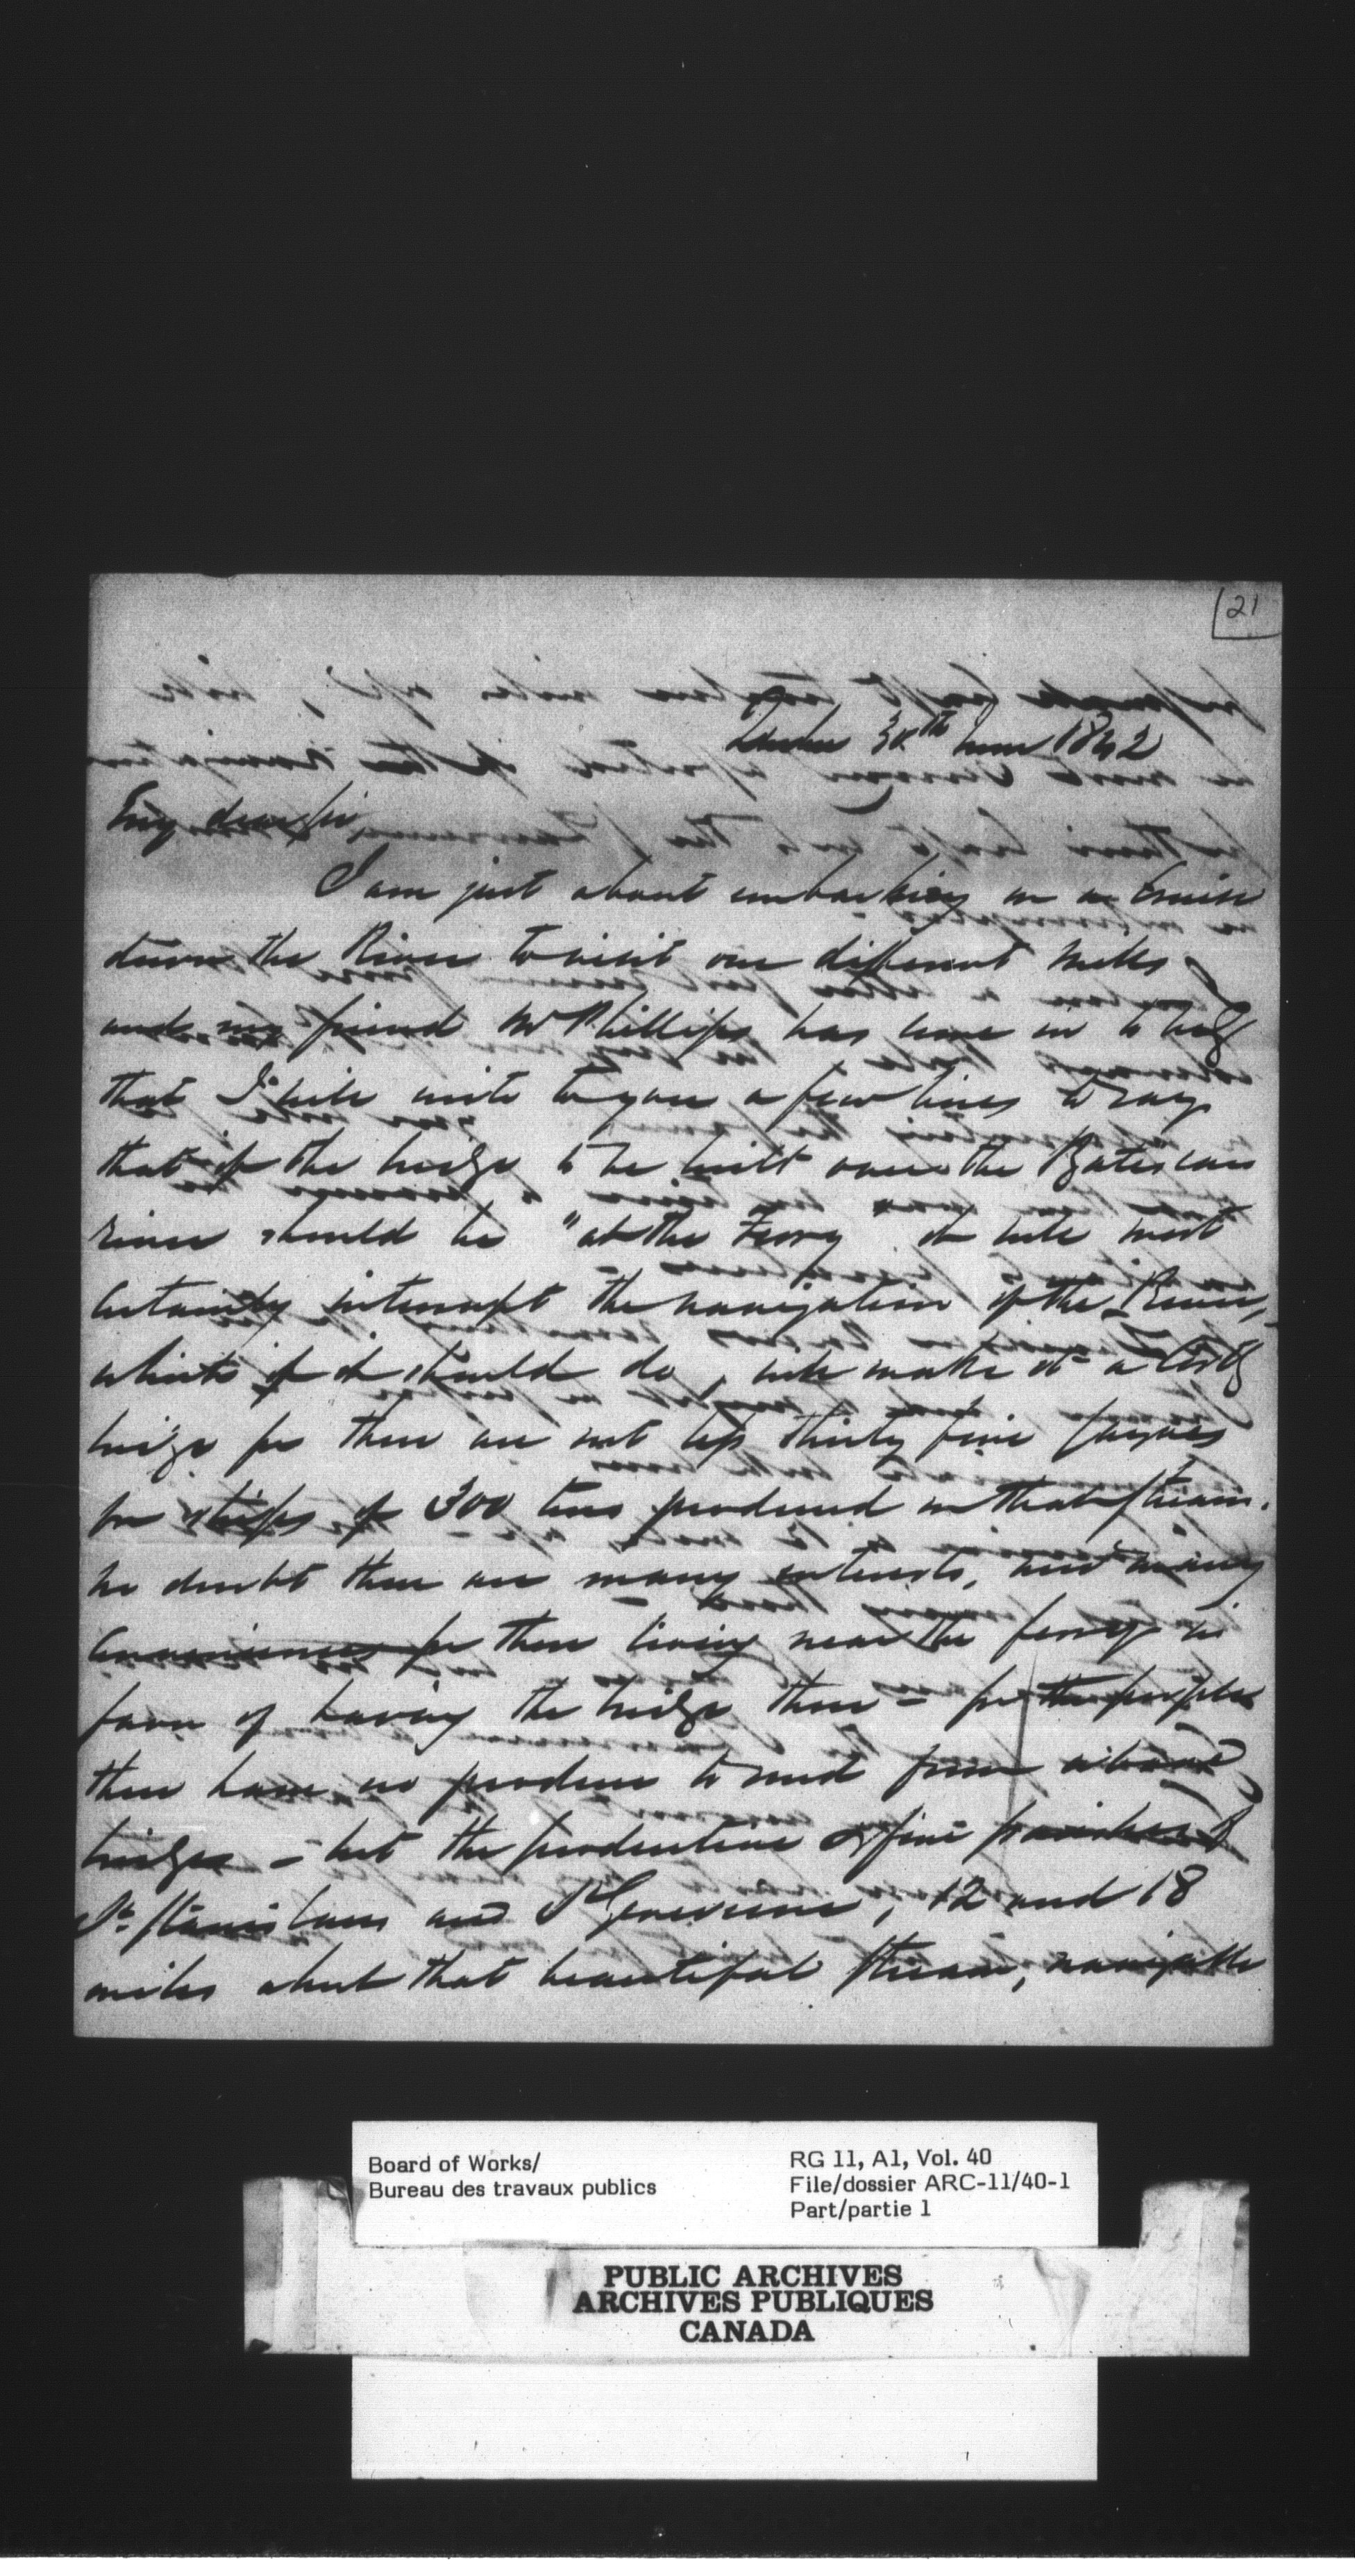 21
Quebec 30th June 1842
My dear Sir,
I am just about embarking on a cruise
down the River to visit our different Mills
and my friend Mr Phillips has come in to beg
that I will write to you a few lines to say
that if the bridge to be built over the Batiscan
river should be "at the Ferry" it will most
certainly interrupt the navigation of the River,
which if it should do, will make it a costly
bridge for there are not less thirty five
for ships of 300 tons produced on that stream.
no doubt there are many interests, and many
conveniences for those living near the ferry in
favor of having the bridge there - for the people
there have no produce to send from above
bridges - but the productions of five parishes of
St. Stanislaus and St Genevieve, 12 and 18
miles about that beautiful Stream, navigable
Board of Works/
Bureau des travaux publics
RG 11, A1, Vol. 40
File/dossier ARC-11/40-1
Part/partie 1
PUBLIC ARCHIVES
ARCHIVES PUBLIQUES
CANADA